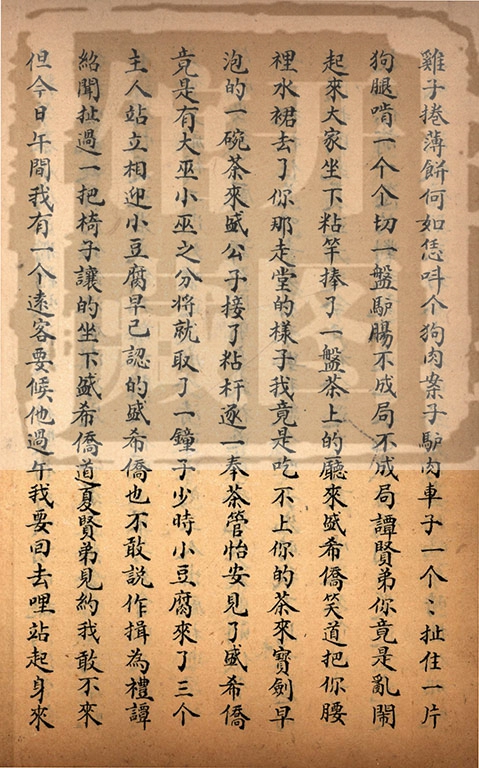 雞子捲薄餅何如恁呌个狗肉案子馿肉車子一个〻扯住一片
狗腿啃一个个切一盤馿腸不成局不成局譚賢弟你竟是亂鬧
起來大家坐下粘竿捧了一盤茶上的廳來盛希僑笑道把你腰
裡水裙去了你那走堂的樣子我竟是吃不上你的茶來寳劍早
泡的一碗茶來盛公子接了粘杆逐一奉茶管怡安見了盛希僑
竟是有大巫小巫之分將就取了一鐘子少時小豆腐來了三个
主人站立相迎小豆腐早已認的盛希僑也不敢說作揖為禮譚
紹聞扯過一把椅子讓的坐下盛希僑道夏賢弟見約我敢不來
但今日午間我有一个遠客要候他過午我要回去哩站起身來